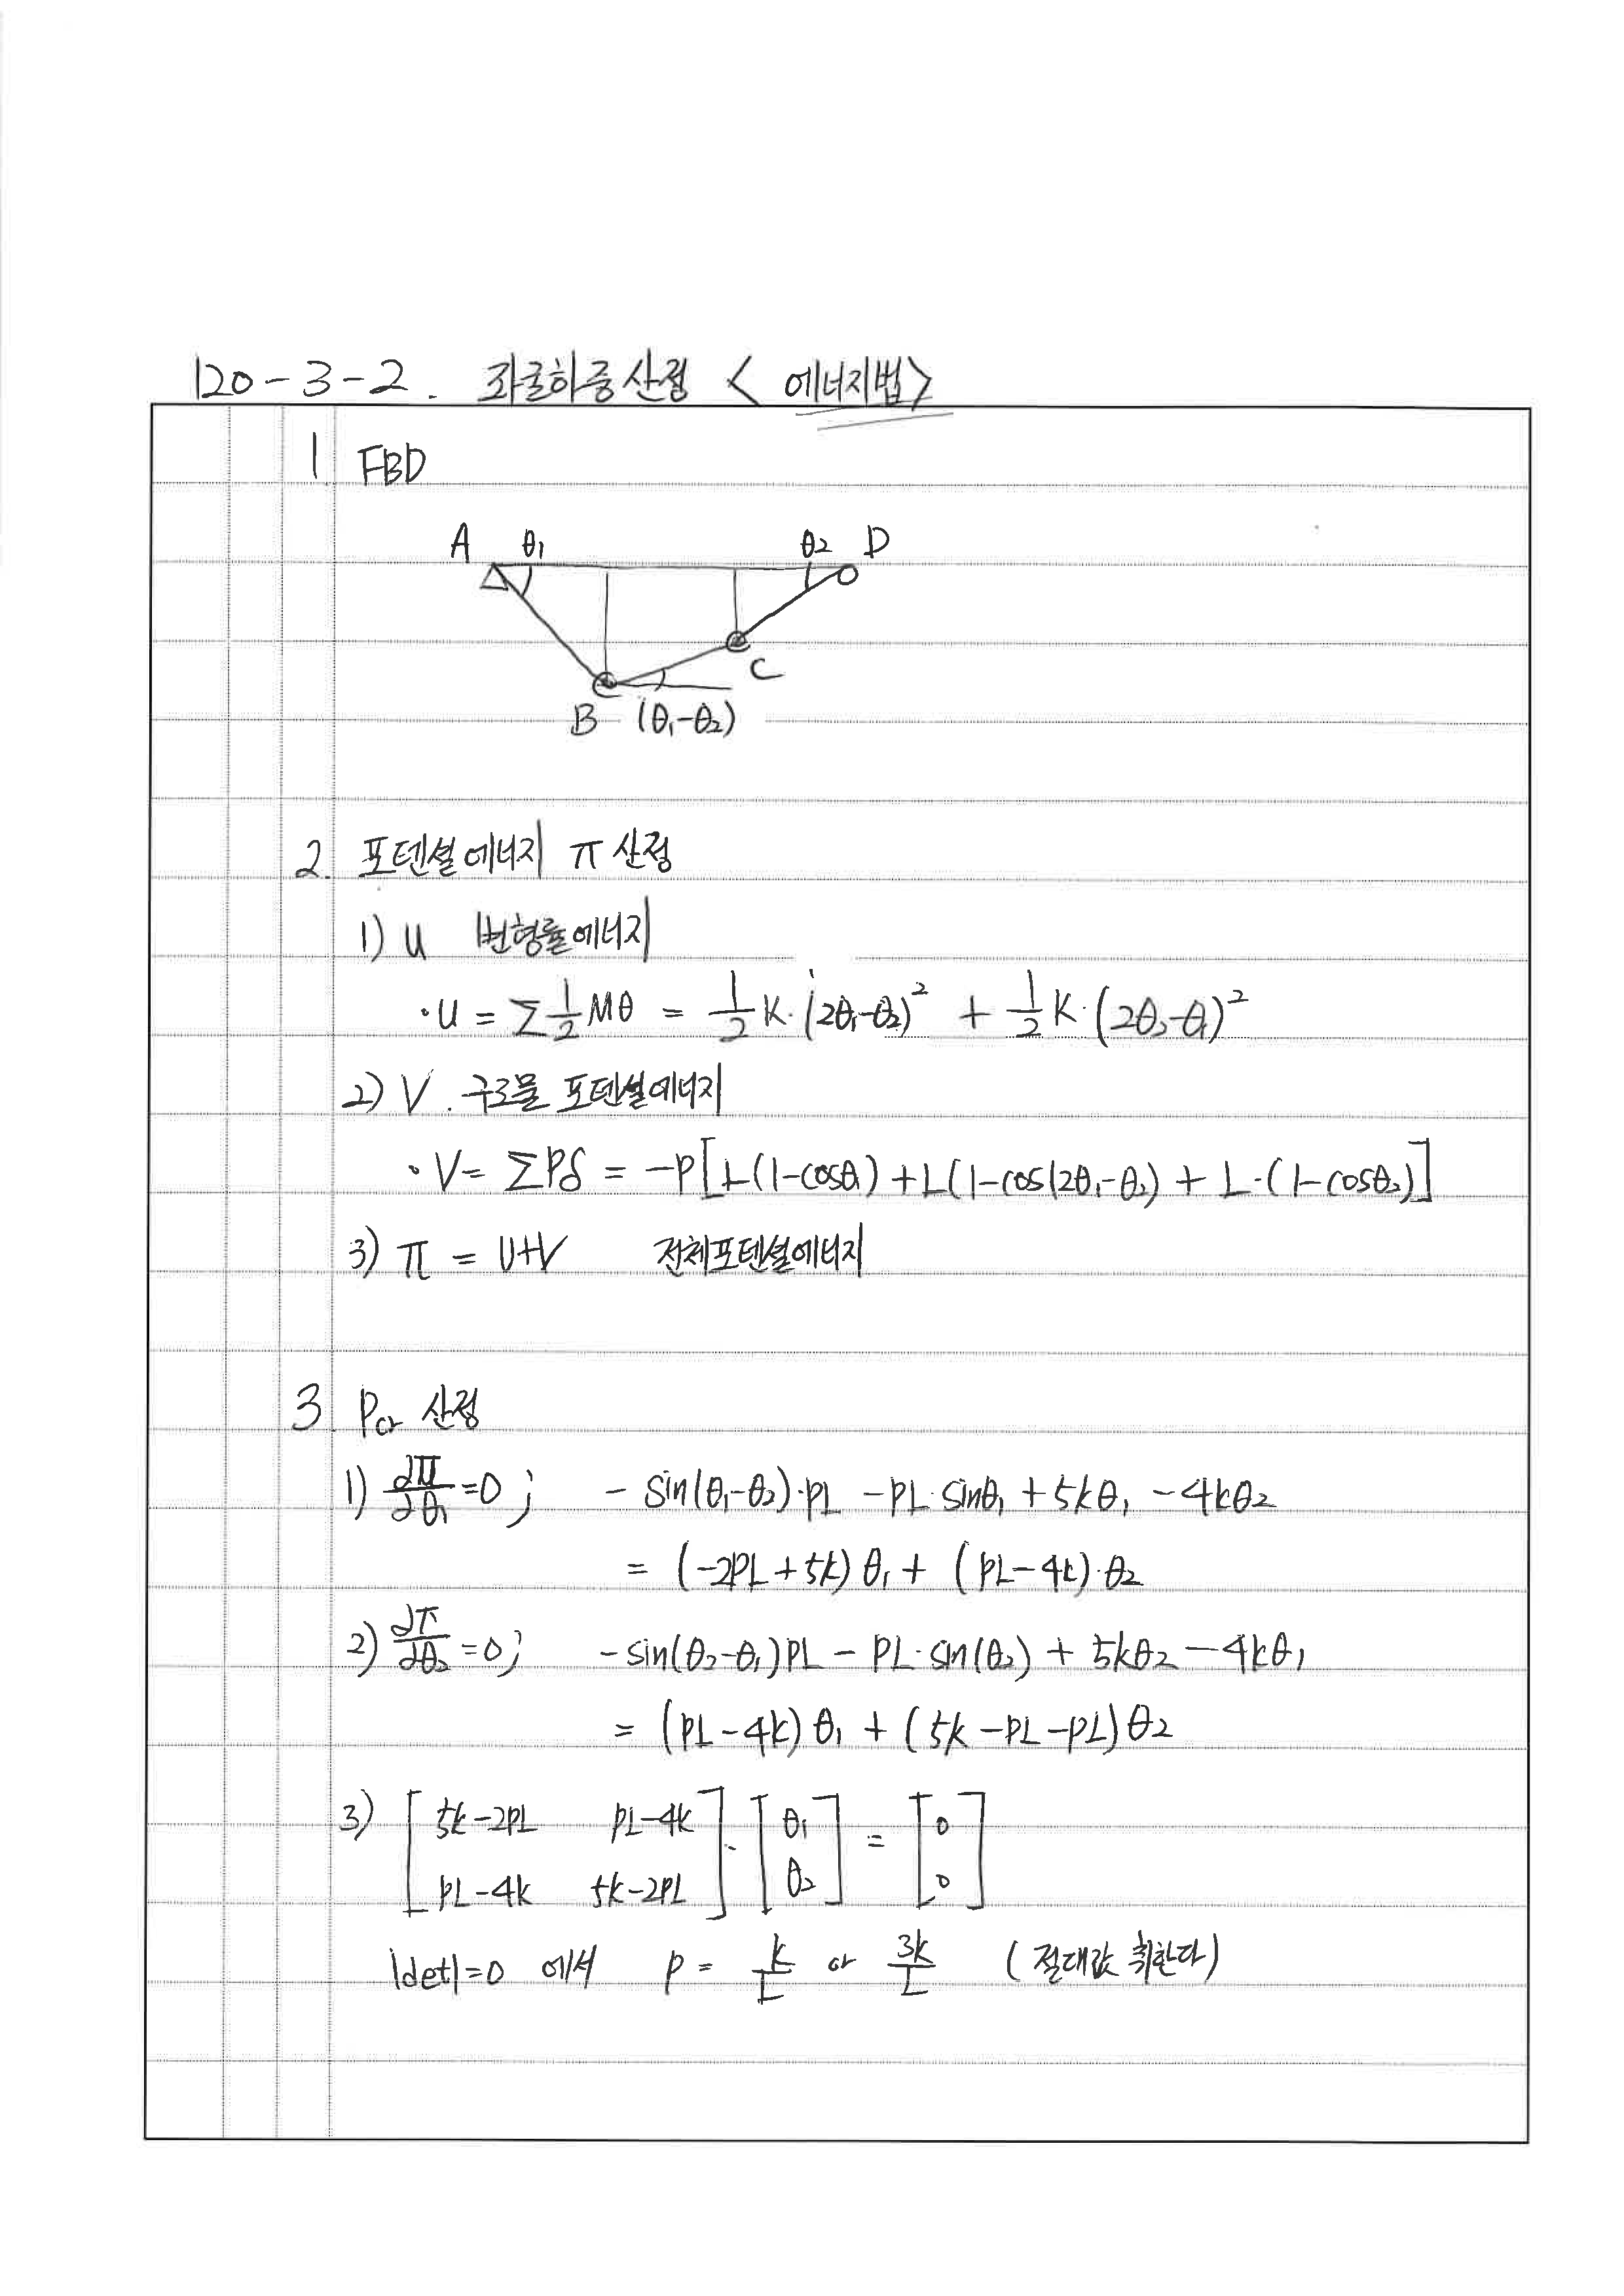 120-3-2. 좌굴하중산정 < 에너지법>
1. FBD
A θ₁ θ₂ D
C
B (θ₁-θ₂)
2. 포텐셜에너지 π 산정
1) U 변형률에너지
·U = Σ½Mθ = ½K·(2θ₁-θ₂)² + ½K·(2θ₂-θ₁)²
2) V. 구조물 포텐셜에너지
·V= ΣPδ = -P[L(1-cosθ₁) +L(1-cos(2θ₁-θ₂) + L·(1-cosθ₂)]
3) π = U+V 전체포텐셜에너지
3. Pcr 산정
1) ∂π/∂θ₁=0; - sin(θ₁-θ₂)·PL -PL·sinθ₁ +5kθ₁ -4kθ₂
= (-2PL+5k) θ₁ + (PL-4k)·θ₂
2) ∂π/∂θ₂=0; -sin(θ₂-θ₁)PL - PL·sin(θ₂) + 5kθ₂ -4kθ₁
= (PL-4k) θ₁ + (5k -PL-PL)θ₂
3) [5k-2PL PL-4k]·[θ₁] = [0]
[PL-4k 5k-2PL] [θ₂] [0]
|det|=0 에서 P = k/L or 3k/L (절대값 취한다)